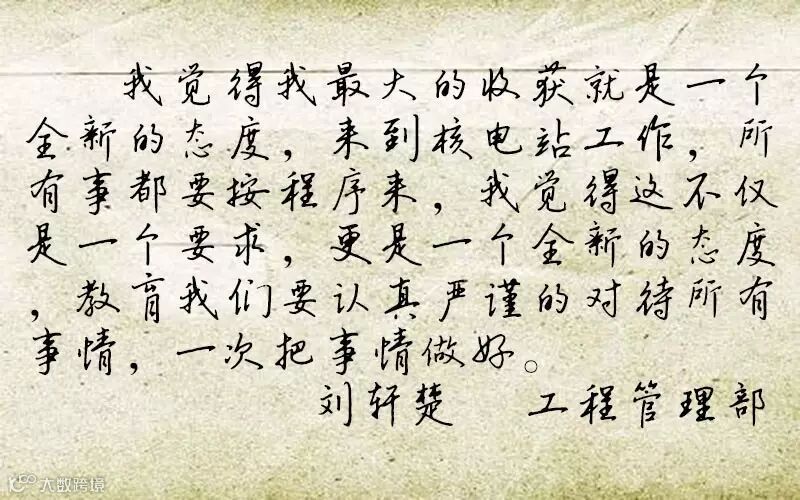 我觉得我最大的收获就是一个
全新的态度，来到核电站工作，所
有事都要按程序来，我觉得这不仅
是一个要求，更是一个全新的态度
，教育我们要认真严谨的对待所有
事情，一次把事情做好。
刘轩楚 工程管理部
大数跨境